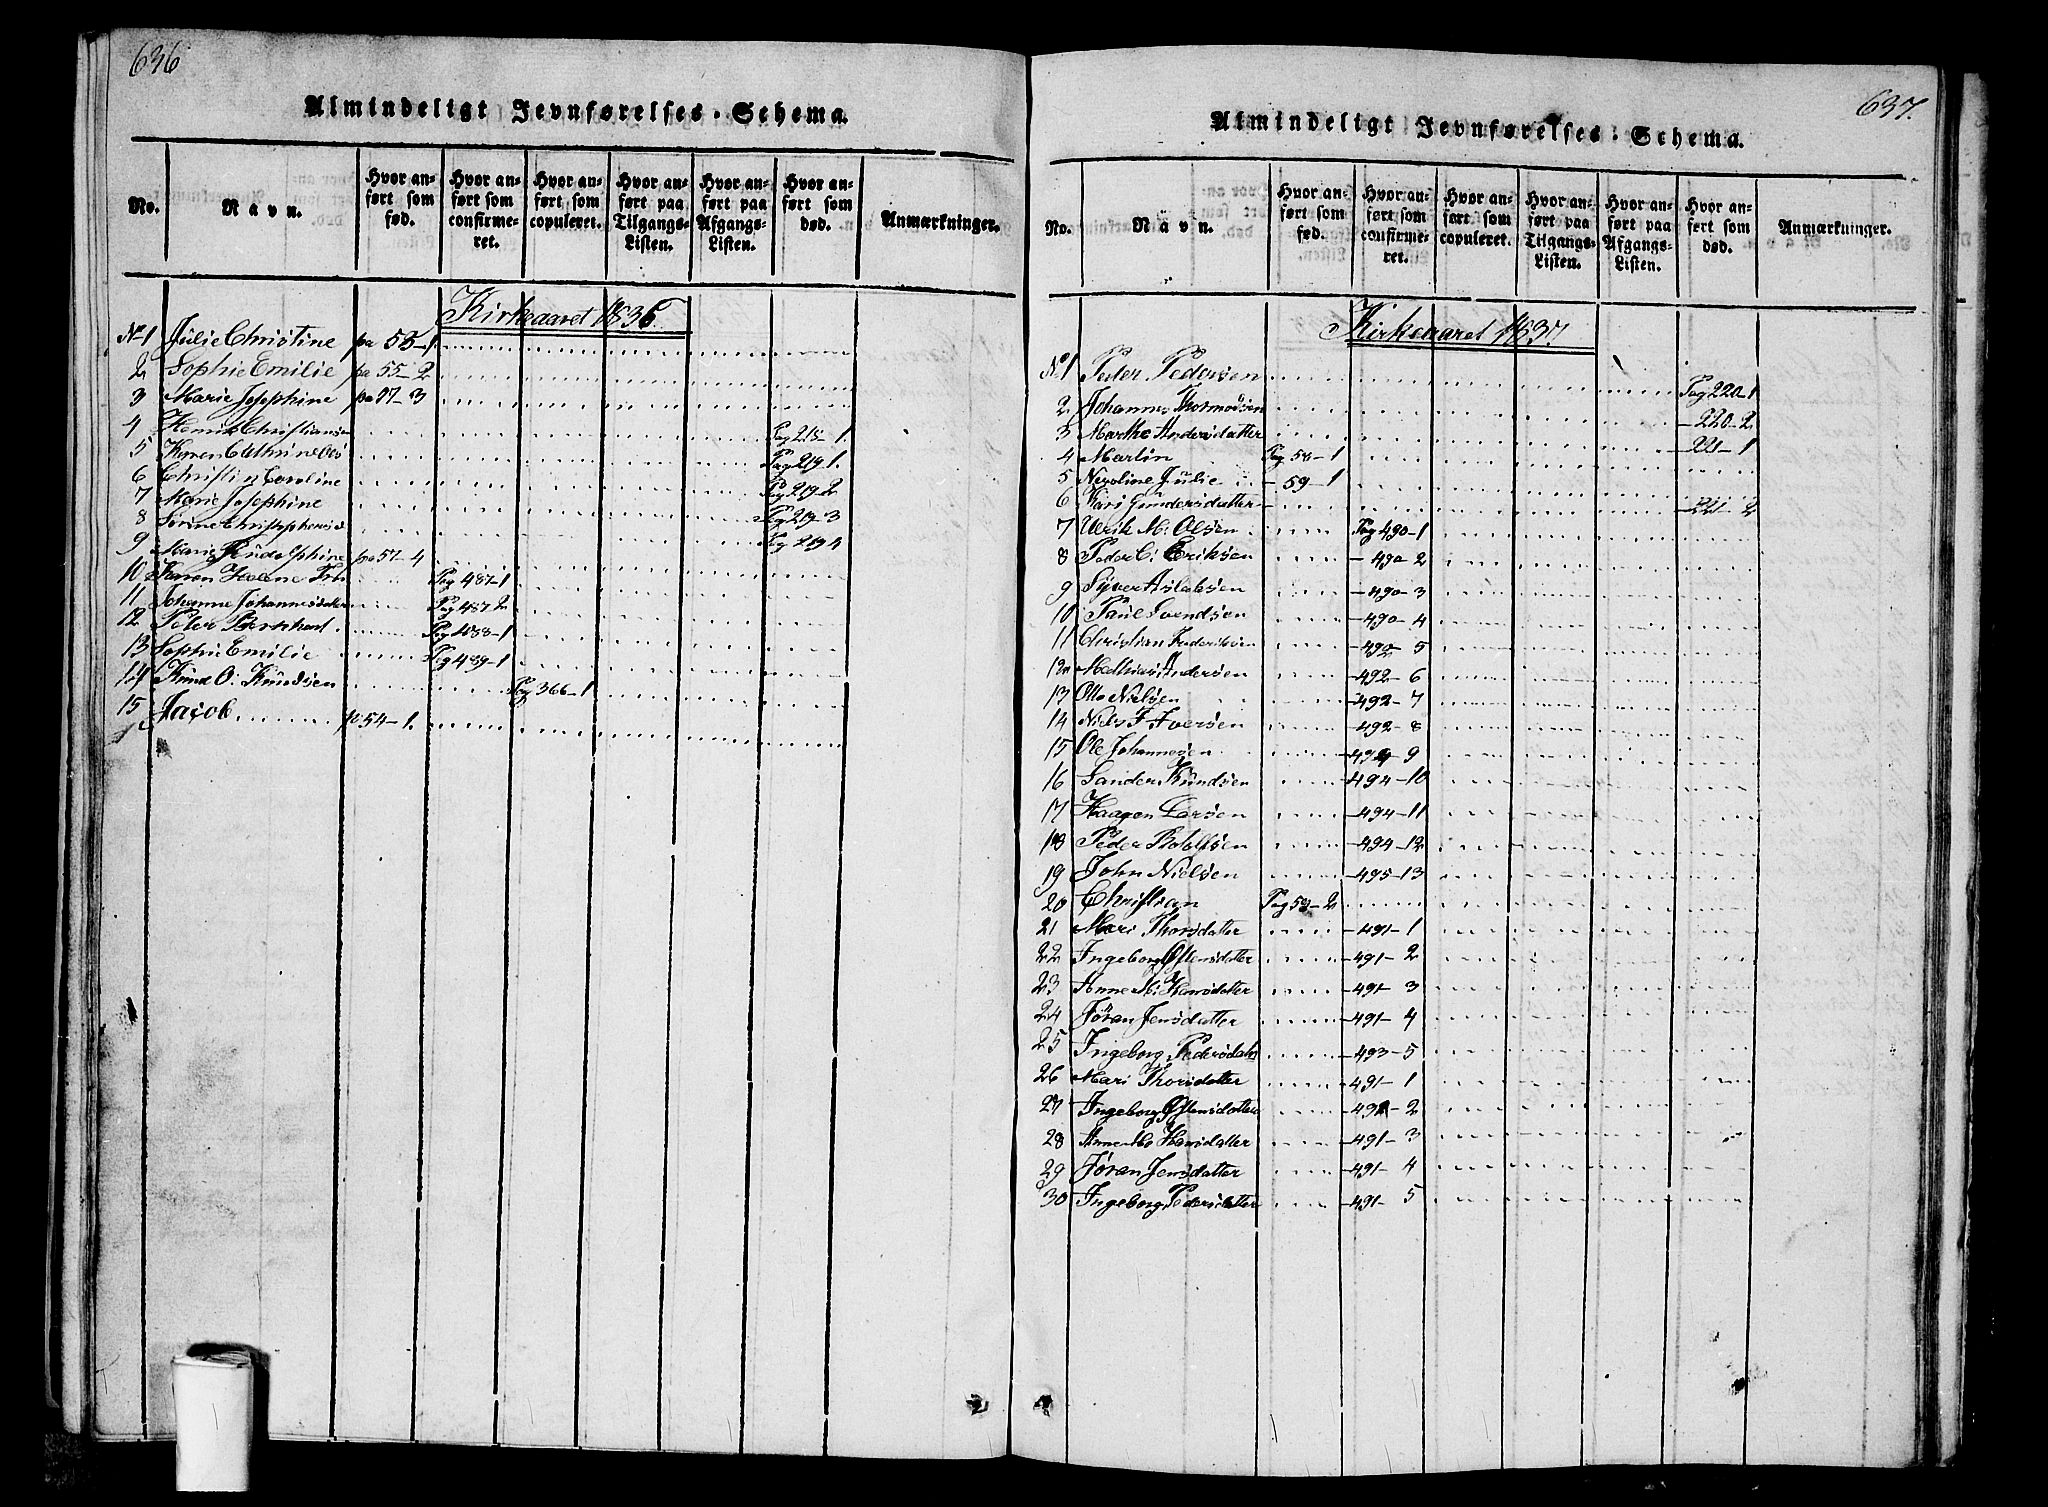 636
Almindeligt Jevnførelses-Schema.
No.
Navn.
Hvor anført som fød.
Hvor anført som confirmeret.
Hvor anført som copuleret.
Hvor anført paa Tilgangs-Listen.
Hvor anført paa Afgangs-Listen.
Hvor anført som død.
Anmærkninger.
Kirkeaaret 1836.
No 1 Julie Christine pa 53-1
2 Sophie Emilie pa 55-2
3 Marie Josephine pa 57-3
4 Henrik Christiansen Pag 215-1.
5 Karen Cathrine Pag 219 1.
6 Caroline Pag 219-2
7 Marie Josephine Pag 219-3
8 Pag 219 4
9 Marie pa 57-4
10 Pag 487-1
11 Johanne Johannesdatter Pag 487 2
12 Peter Bernhard Pag 488-1
13 Sophie Emilie Pag 489-1
14 Knud O. Knudsen Pag 366-1
15 Jacob p 54-1.
637.
Almindeligt Jevnførelses-Schema.
No.
Navn.
Hvor anført som fød.
Hvor anført som confirmeret.
Hvor anført som copuleret.
Hvor anført paa Tilgangs-Listen.
Hvor anført paa Afgangs-Listen.
Hvor anført som død.
Anmærkninger.
Kirkeaaret 1837
No 1 Peder Pedersen Pag 220-1
2 Johannes Thormodsen -220-2
3 Marthe Andersdatter -221-1
4 Martin Pag 58-1
5 Nicoline Julie -59-1
6 Kari Gundersdatter -221-2
7 Ulrik M. Olsen Pag 490-1
8 Peder C. Eriksen -490-2
9 Syver Aslaksen -490-3
10 Paul Svendsen -490-4
11 Christian Frederiksen -492-5
12 Mathias Andersen -492-6
13 Otto Nielsen -492-7
14 Niels F Iversen -492-8
15 Ole Johannesen -494-9
16 Sander Knudsen -494-10
17 Haagen Larsen -494-11
18 Peder -494-12
19 John Nielsen -495-13
20 Christian Pag 58-2
21 Mari Thorsdatter -491-1
22 Ingeborg Østensdatter -491-2
23 Anne M. Hansdatter -491-3
24 Jøran Jensdatter -491-4
25 Ingeborg Pedersdatr -493-5
26 Mari Thorsdatter -491-1
27 Ingeborg Østensdatter -491-2
28 Anne Ma Hansdatter -491-3
29 Jøran Jensdatter -491-4
30 Ingeborg Pedersdatter -491-5